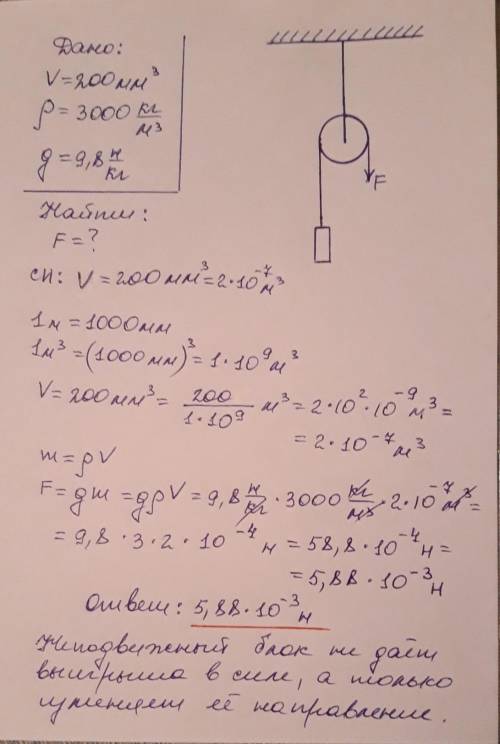 Дано:
V=200мм³
ρ=3000 кг/м³
g=9,8 н/кг
Найти:
F=?
F
СИ: V=200мм³=2·10⁻⁷м³
1м=1000мм
1м³=(1000мм)³=1·10⁹м³
V=200мм³= 200/1·10⁹ м³=2·10²·10⁻⁹м³=
=2·10⁻⁷м³
m=ρV
F=gm=gρV=9,8 н/кг·3000 кг/м³·2·10⁻⁷м³=
=9,8·3·2·10⁻⁴н=58,8·10⁻⁴н=
=5,88·10⁻³н
Ответ: 5,88·10⁻³н
Неподвижный блок не даёт
выигрыша в силе, а только
изменяет её направление.